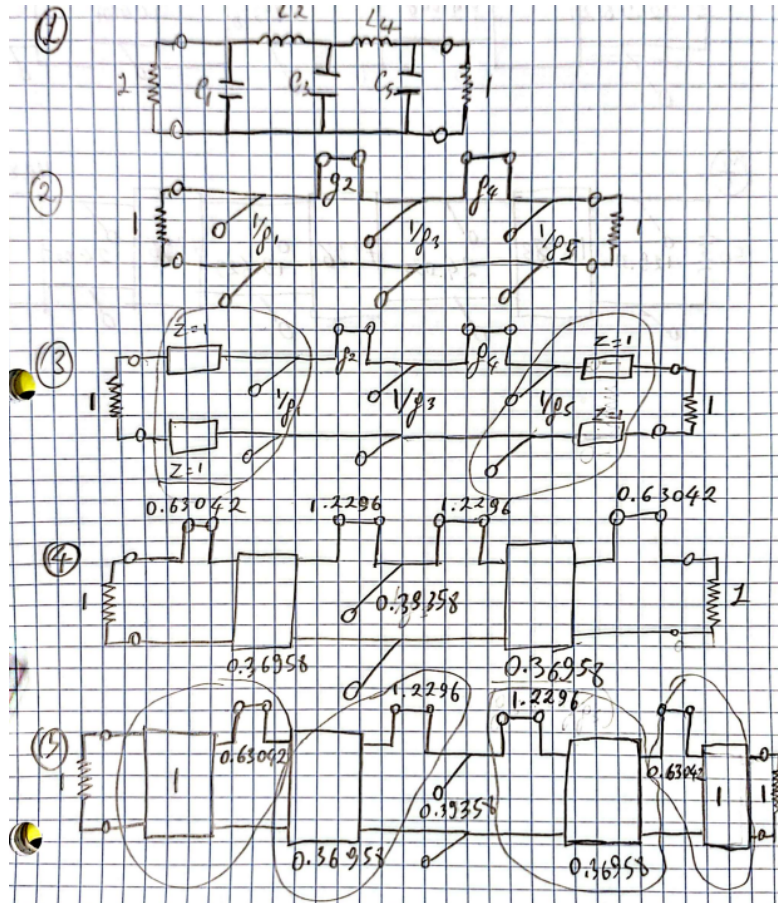 ①
L2 L4
1 C1 C3 C5 1
②
g2 g4
1 1/g1 1/g3 1/g5 1
③
Z=1 Z=1
g2 g4
1 1/g1 1/g3 1/g5 1
Z=1 Z=1
0.63042 1.2296 1.2296 0.63042
④
1 0.39358 1
0.36958 0.36958
⑤
1.2296 1.2296
1 1 0.63042 0.63042 1 1
0.39358
0.36958 0.36958